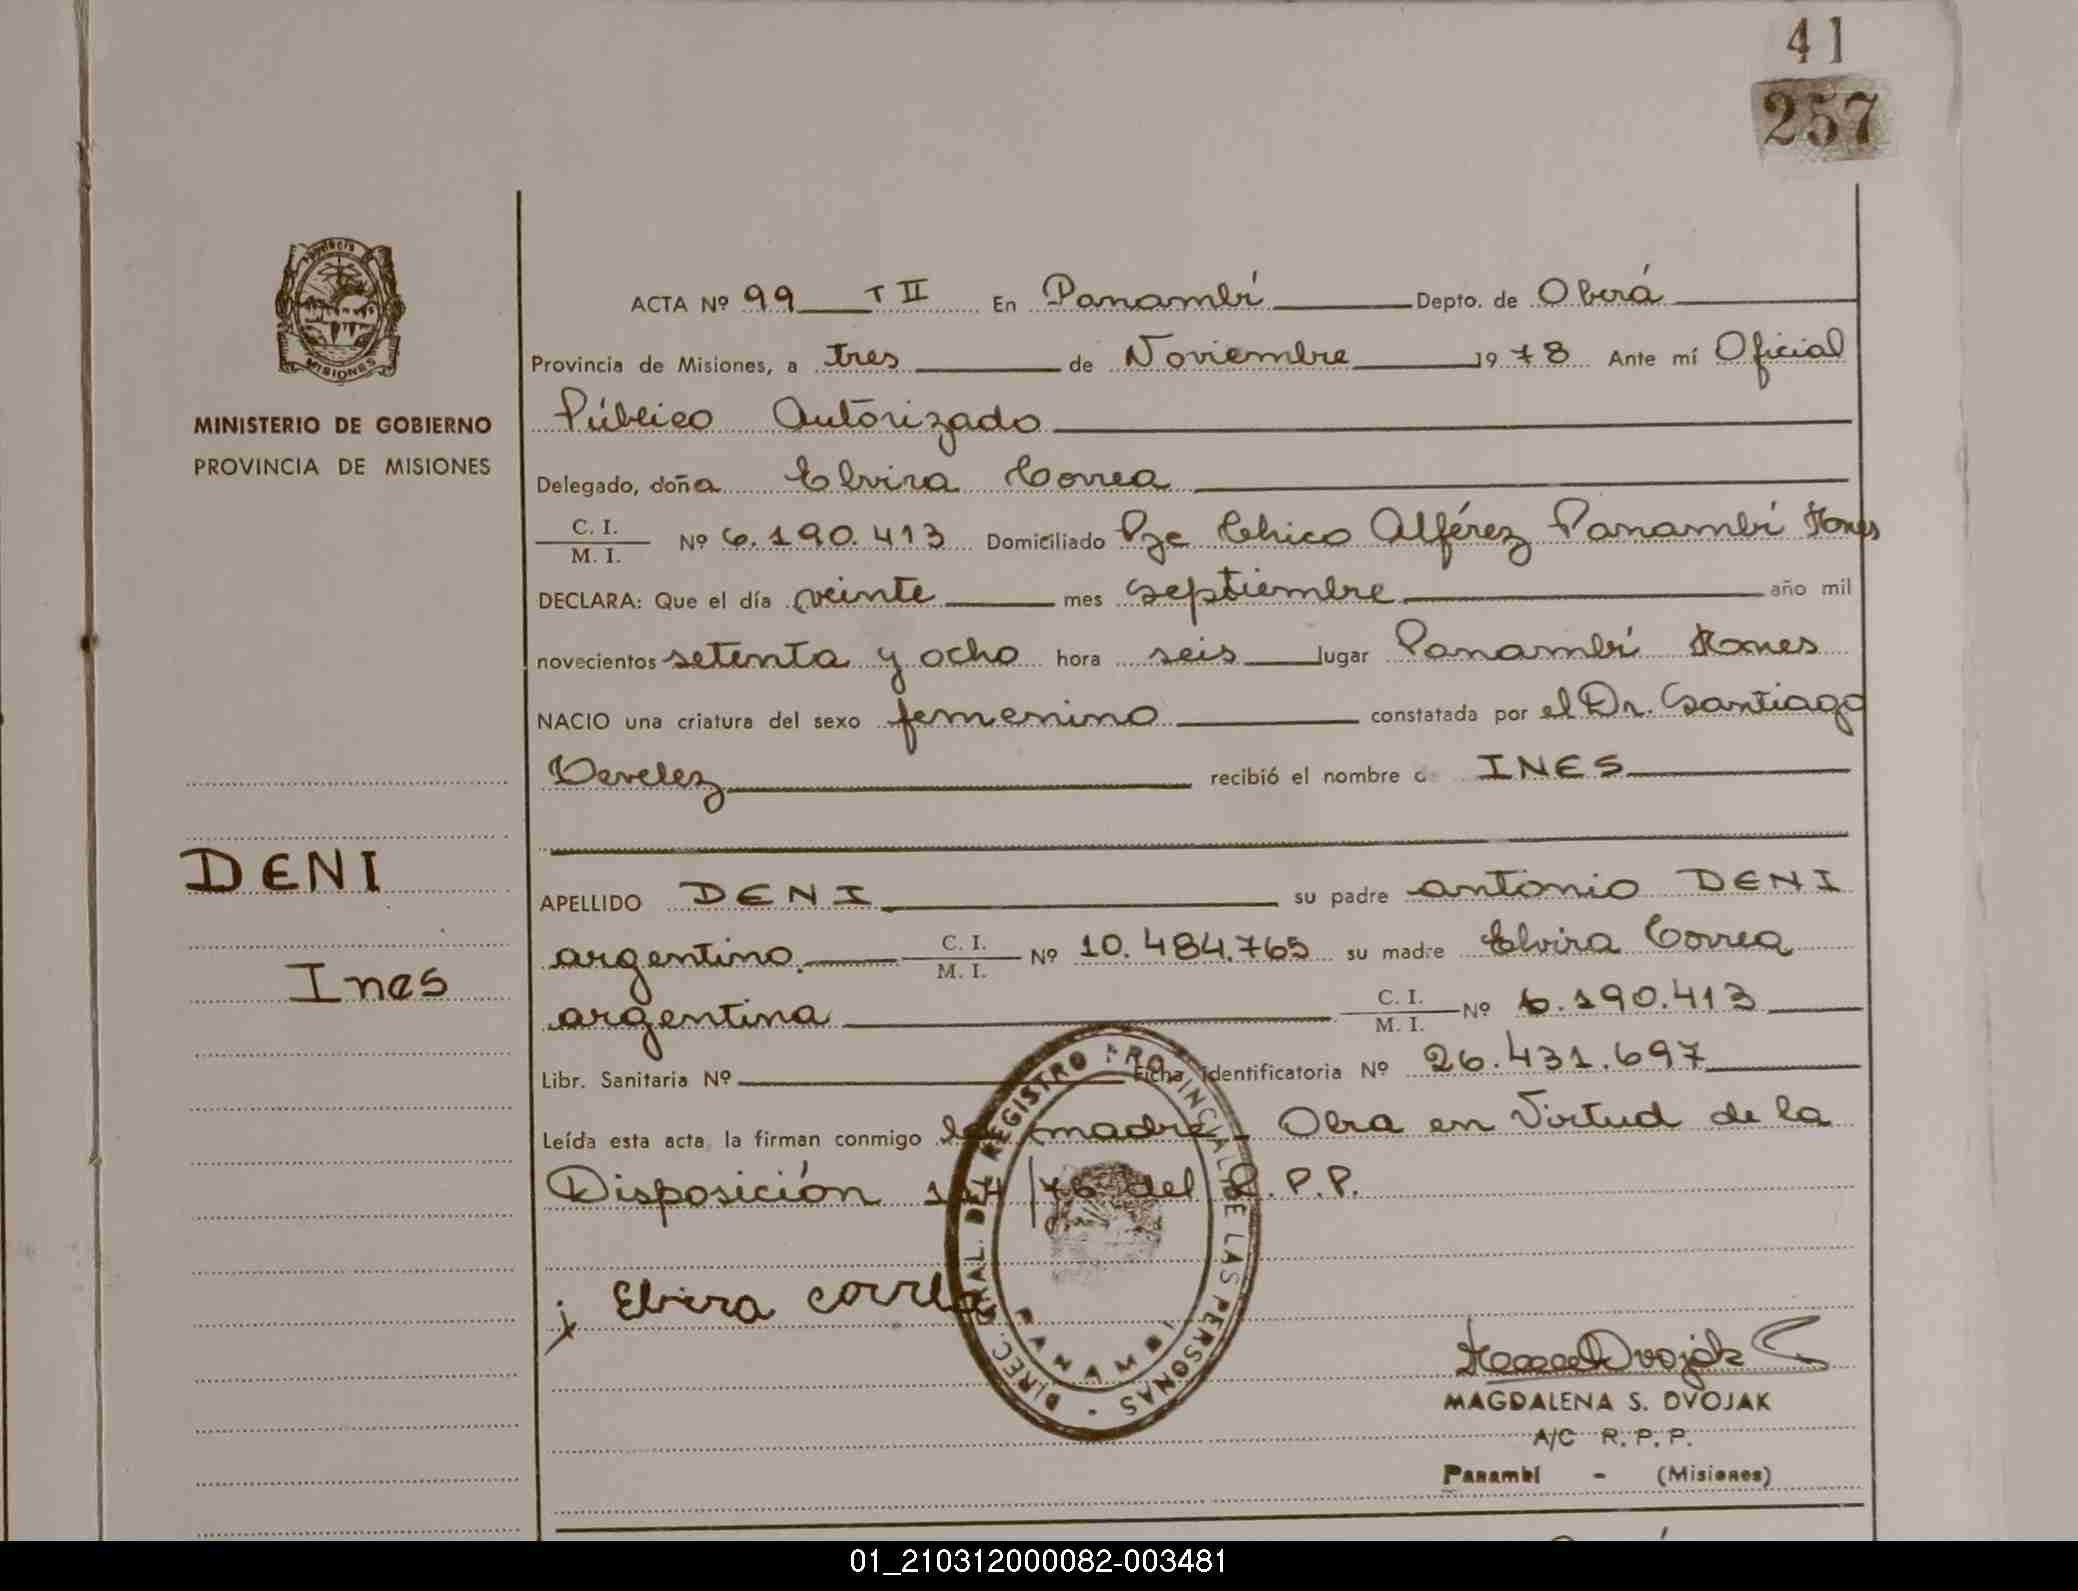 41
257
Provincia
MISIONES
MINISTERIO DE GOBIERNO
PROVINCIA DE MISIONES
DENI
Ines
ACTA Nº 99 T II En Panambí Depto. de Oberá
Provincia de Misiones, a tres de Noviembre 1978 Ante mí Oficial
Público Autorizado
Delegado, doña Elvira Correa
C. I.
M. I. Nº 6.190.413 Domiciliado Pje Chico Alférez Panambí Mones
DECLARA: Que el día veinte mes septiembre año mil
novecientos setenta y ocho hora seis lugar Panambí Mones
NACIO una criatura del sexo femenino constatada por el Dr. Santiago
recibió el nombre d INES
APELLIDO DENI su padre antonio DENI
argentino. C. I. M. I. Nº 10.484.765 su madre Elvira Correa
argentina C. I. M. I. Nº 6.190.413
Libr. Sanitaria Nº Ficha Identificatoria Nº 26.431.697
Leída esta acta, la firman conmigo la madre - Obra en Virtud de la
Disposición /76 del R.P.P.
Elvira correa
DIREC. GRAL. DEL REGISTRO PROVINCIAL DE LAS PERSONAS -
PANAMBI
Dvojak
MAGDALENA S. DVOJAK
A/C R. P. P.
Panambí - (Misiones)
01_210312000082-003481